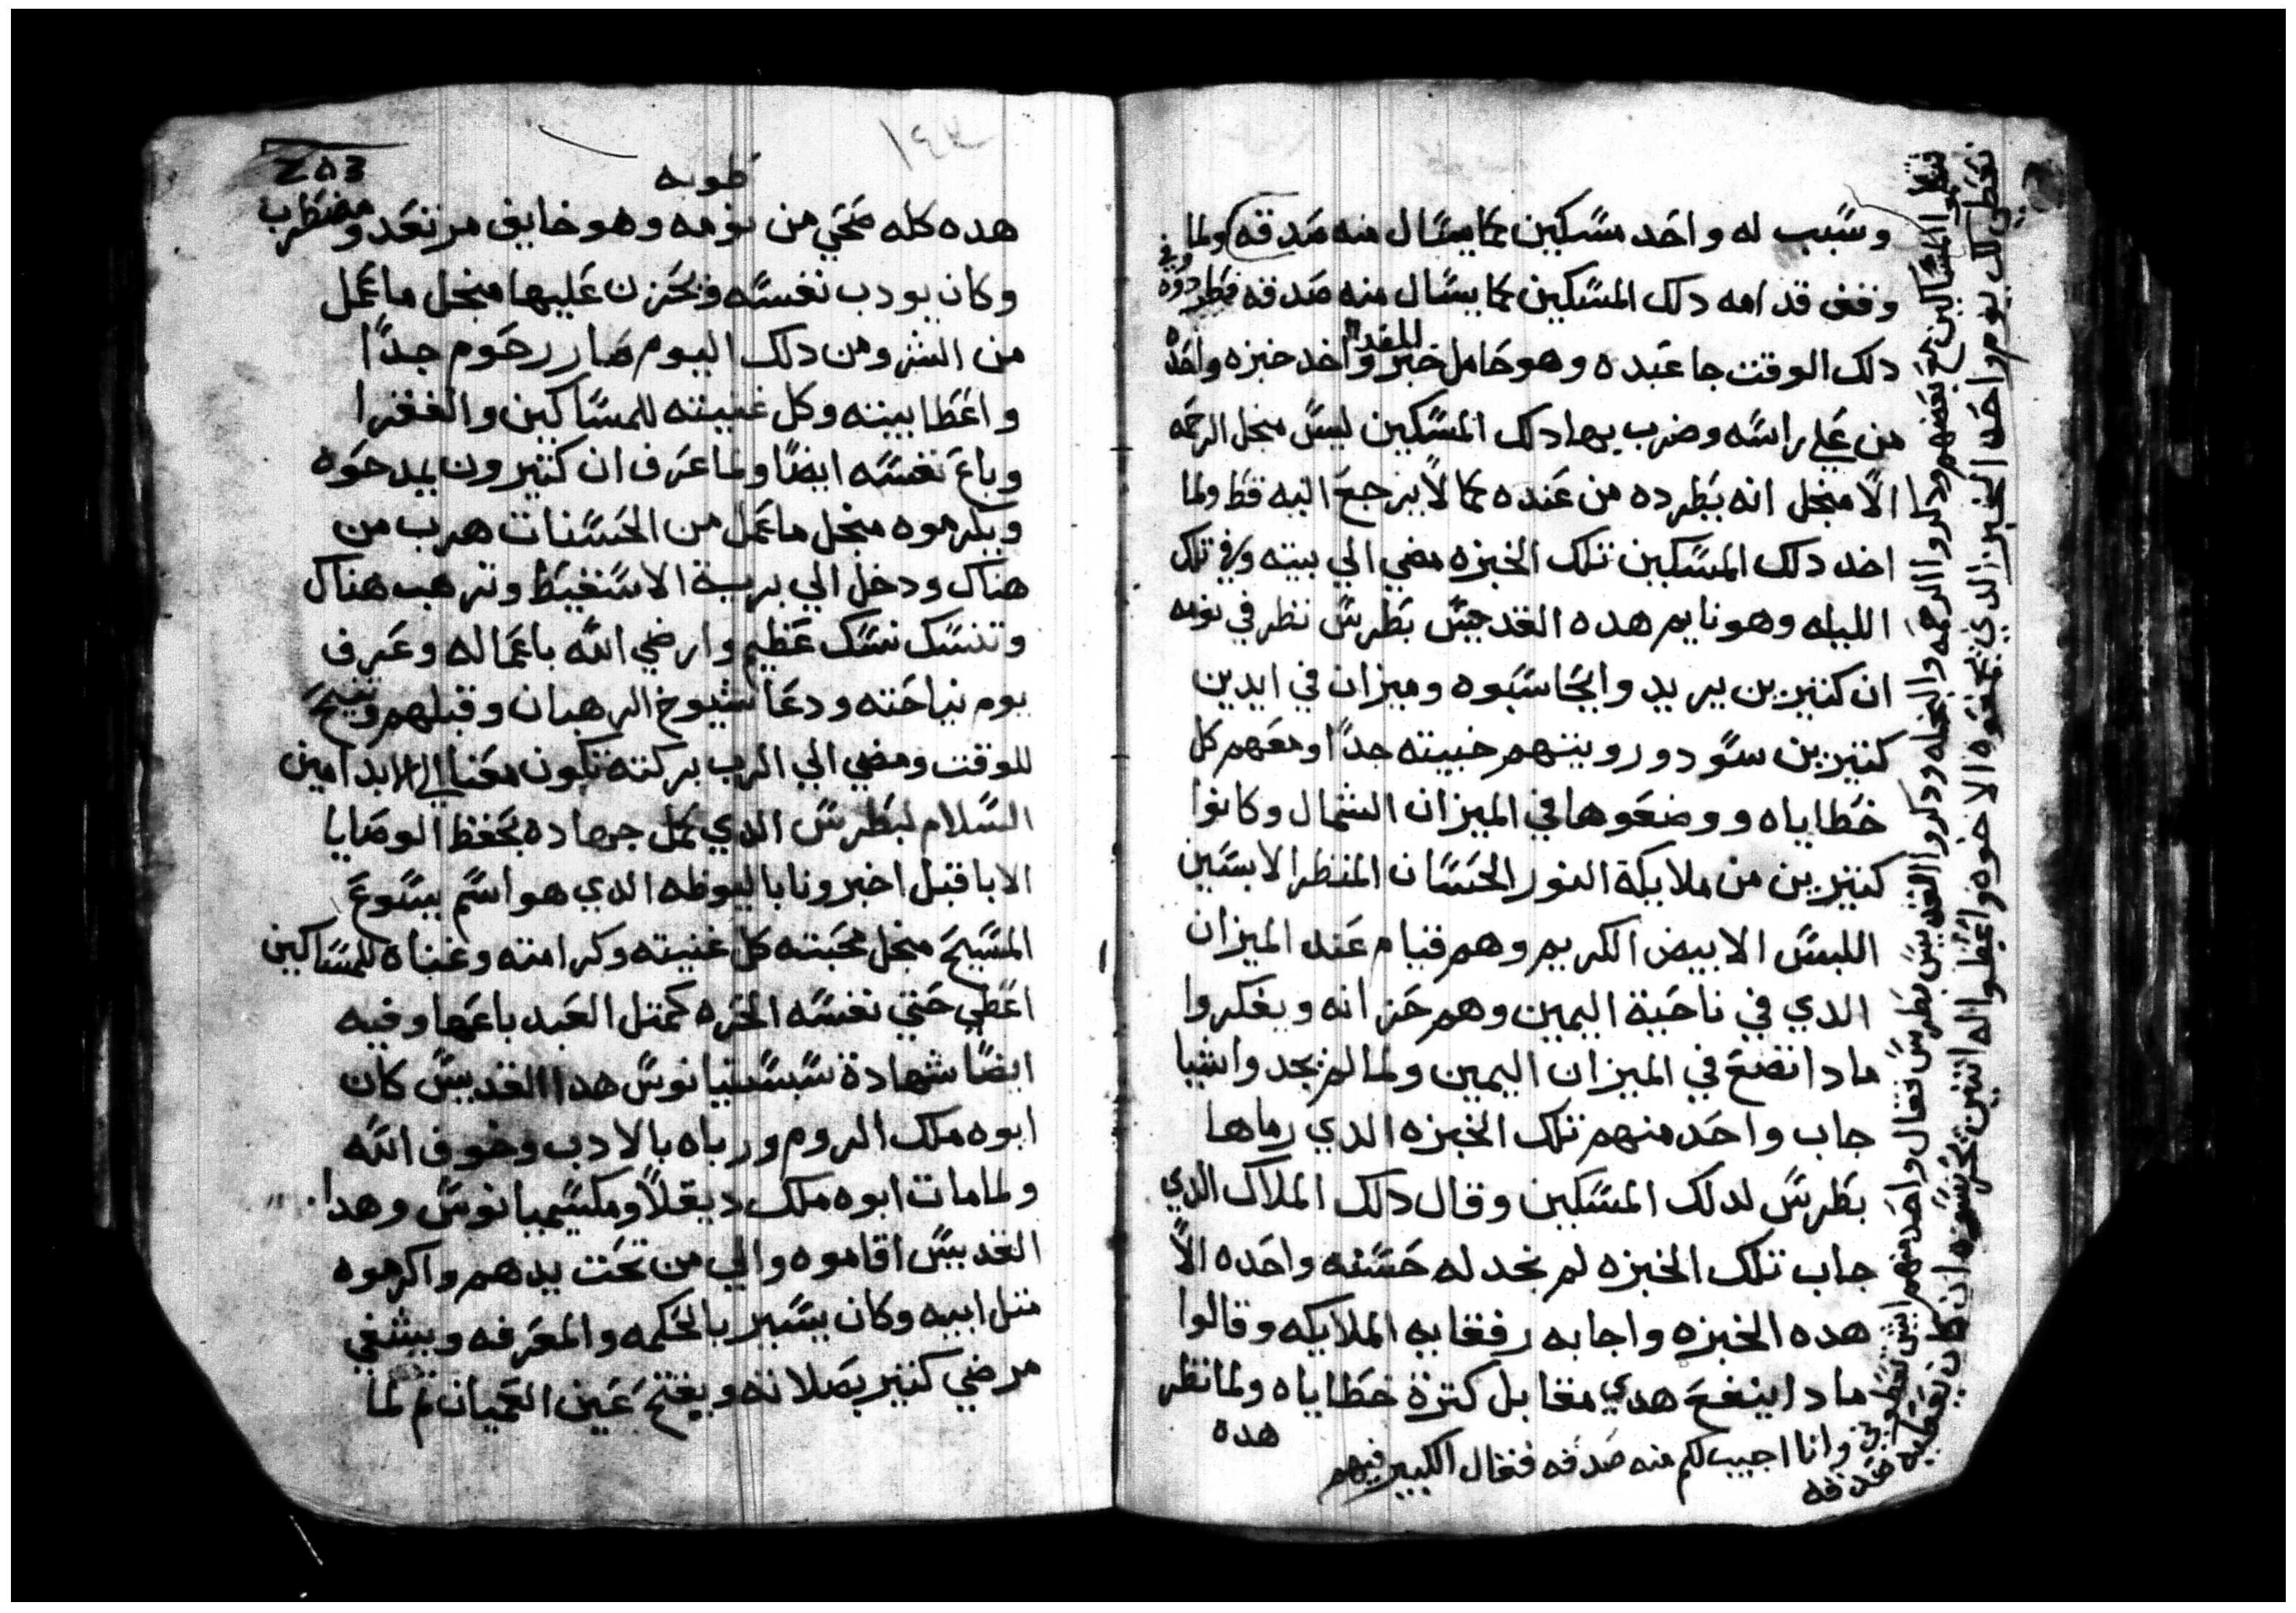 وسبب له واحد مسكين كما يسال منه صدقه ولما
وقف قدامه دلك المسكين كما يسال منه صدقه فطردوه وفي
دلك الوقت جا عبده وهو حامل خبز للغدا واخد خبزه واحده
من علي راسه وضرب بها دلك المسكين ليس منجل الرحمه
الا منجل انه يطرده من عنده كما لا يرجع اليه قط ولما
اخد دلك المسكين تلك الخبزه مضي الي بيته وفي تلك
الليله وهو نايم هده القديس بطرس نظر في نومه
ان كتيرين يريدوا يحاسبوه وميزان في ايدين
كتيرين سود ورويتهم خبيته جدا ومعهم كل
خطاياه ووضعوها في الميزان الشمال وكانوا
كتيرين من ملايكة النور الحسان المنظر الابسين
اللبس الابيض الكريم وهم قيام عند الميزان
الدي في ناحية اليمين وهم حزانه ويفكروا
مادا نضع في الميزان اليمين ولما لم يجدوا شيا
جاب واحد منهم تلك الخبزه الدي رماها
بطرس لدلك المسكين وقال دلك الملاك الدي
جاب تلك الخبزه لم نجد له حسنه واحده الا
هده الخبزه واجابه رفقايه الملايكه وقالوا
مادا ينفع هدي مقابل كترة خطاياه ولما نظر
هده
المساكين مع بعضهم ودكروا الرحمه والبخله ودكروا القديس بطرس فقال واحد منهم ايش تعطوني
وانا اجيب لكم منه صدقه فقال الكبير فيهم
نعطي لك يوم واحد الخبز الدي يجمعوه الاخوه واعطوا له اتنين ان كان يعطيه
صدقه
253
١٤٣
طوبه
هده كله صحي من نومه وهو خايف مرتعد ومضطرب
وكان يودب نفسه ويحزن عليها منجل ما عمل
من الشر ومن دلك اليوم صار رحوم جدا
واعطا بيته وكل غنيته للمساكين والفقرا
وباع نفسه ايضا ولما عرف ان كتيرون يمدحوه
ويكرموه منجل ما عمل من الحسنات هرب من
هناك ودخل الي برية الاسقيط وترهب هناك
وتنسك نسك عظيم وارضي الله باعماله وعرف
يوم نياحته ودعا شيوخ الرهبان وقبلهم وتنيح
للوقت ومضي الي الرب بركته تكون معنا الي الابد امين
السلام لبطرس الدي كمل جهاده بحفظ الوصايا
الابا قبل اخبرونا باليوطه الدي هو اسم يسوع
المسيح منجل محبته كل غنيته وكرامته وغناه للمساكين
اعطي حتي نفسه الحره كمتل العبد باعها وفيه
ايضا شهادة سبستيانوس هدا القديس كان
ابوه ملك الروم ورباه بالادب وخوف الله
ولما مات ابوه ملك ديقلا ومكسيميانوس وهدا
القديس اقاموه والي من تحت يدهم واكرموه
متل ابيه وكان يسير بالحكمه والمعرفه ويشفي
مرضي كتير بصلاته ويفتح عين العميان تم لما